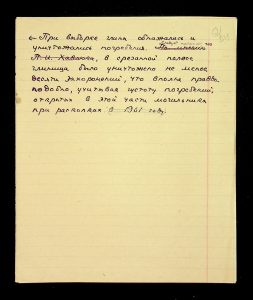 При выборке глины обнажались и
уничтожались погребения.
в срезанной полосе
глинища было уничтожено не менее
десяти захоронений, что вполне правдо-
подобно, учитывая густоту погребений,
открытых в этой части могильника
при раскопках в 1961 году.